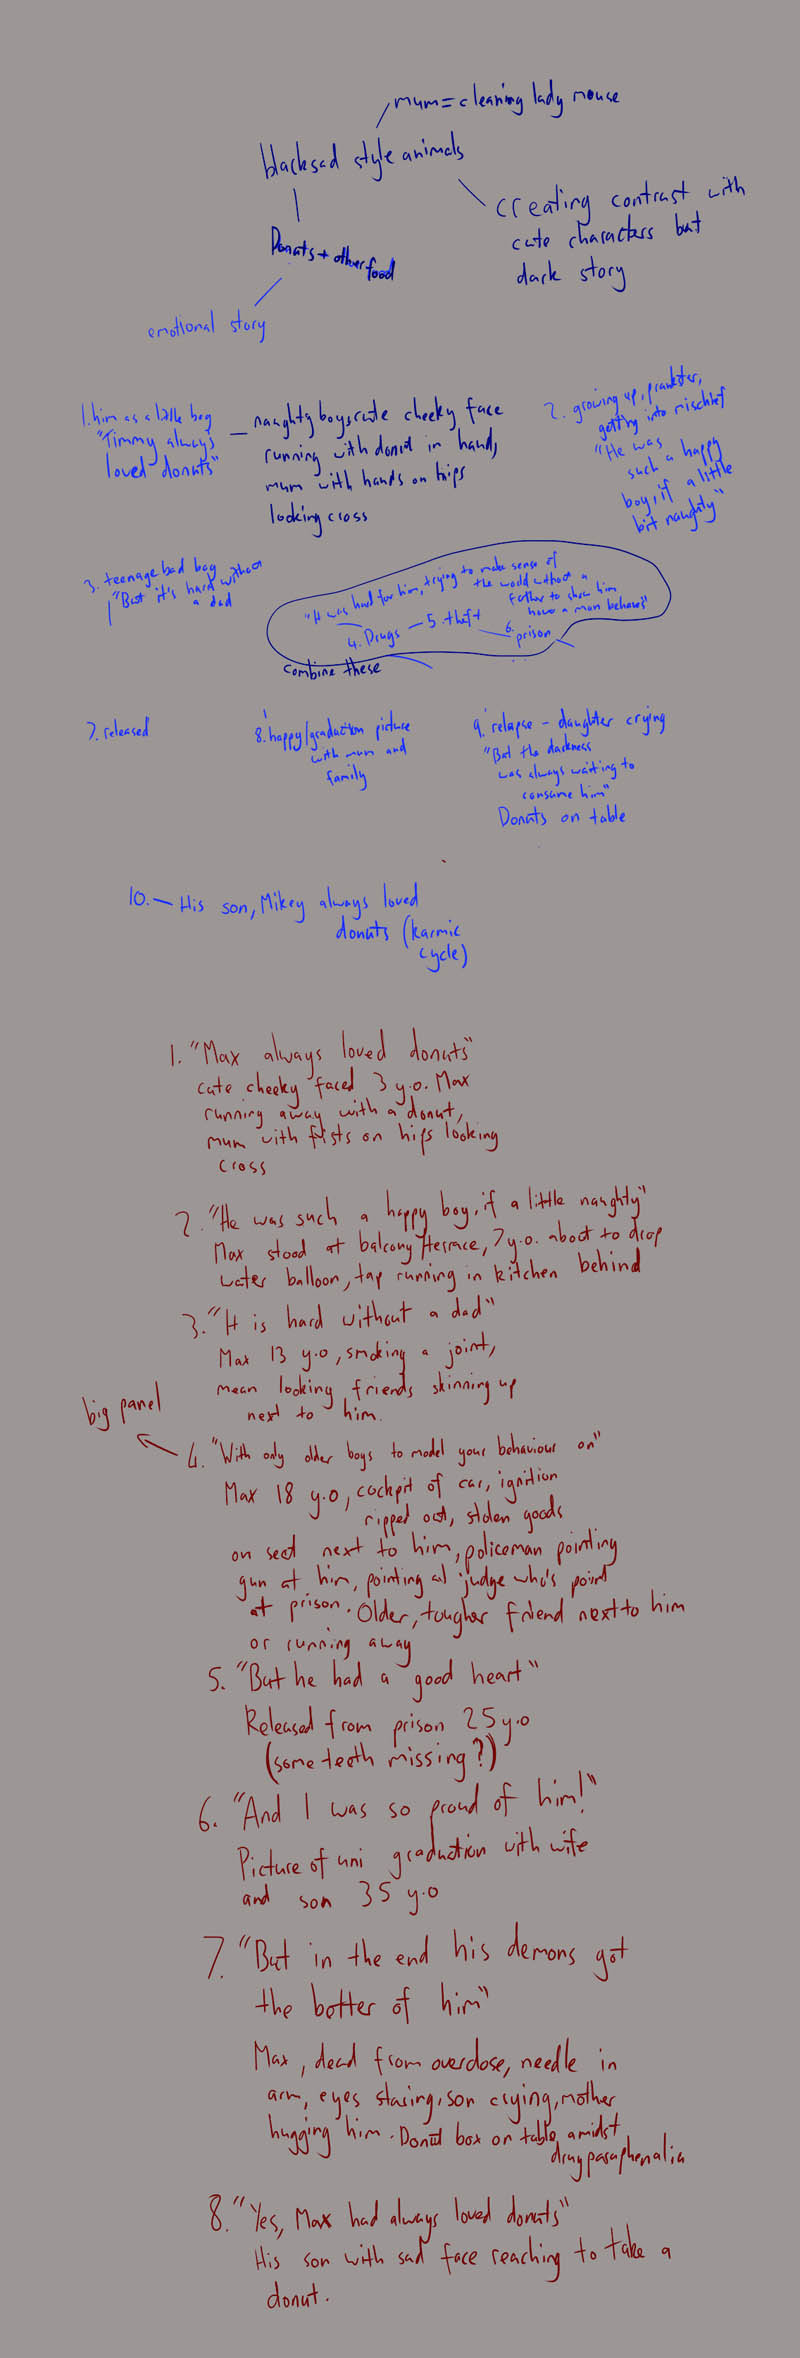 mum = cleaning lady mouse
blacksad style animals
creating contrast with
cute characters but
dark story
Donuts + other food
emotional story
1. him as a little boy
"Timmy always
loved donuts"
— naughty boys cute cheeky face
running with donut in hand,
mum with hands on hips
looking cross
2. growing up, prankster,
getting into mischief
"He was
such a happy
boy, if a little
bit naughty"
3. teenage bad boy
"But it's hard without
a dad
"It was hard for him, trying to make sense of
the world without a
father to show him
how a man behaves"
4. Drugs — 5. theft — 6. prison
combine these
7. released
8. happy/graduation picture
with mum and
family
9. relapse – daughter crying
"But the darkness
was always waiting to
consume him"
Donuts on table
10. — His son, Mikey always loved
donuts (karmic
cycle)
1. "Max always loved donuts"
cute cheeky faced 3 y.o. Max
running away with a donut,
mum with fists on hips looking
cross
2. "He was such a happy boy, if a little naughty"
Max stood at balcony/terrace, 7 y.o. about to drop
water balloon, tap running in kitchen behind
3. "It is hard without a dad"
Max 13 y.o, smoking a joint,
mean looking friends skinning up
next to him.
big panel
4. "With only older boys to model your behaviour on"
Max 18 y.o, cockpit of car, ignition
ripped out, stolen goods
on seat next to him, policeman pointing
gun at him, pointing at judge who's point
at prison. Older, tougher friend next to him
or running away
5. "But he had a good heart"
Released from prison 25 y.o
(some teeth missing?)
6. "And I was so proud of him!"
Picture of uni graduation with wife
and son 35 y.o
7. "But in the end his demons got
the better of him"
Max, dead from overdose, needle in
arm, eyes staring, son crying, mother
hugging him. Donut box on table amidst
drug paraphenalia
8. "Yes, Max had always loved donuts"
His son with sad face reaching to take a
donut.